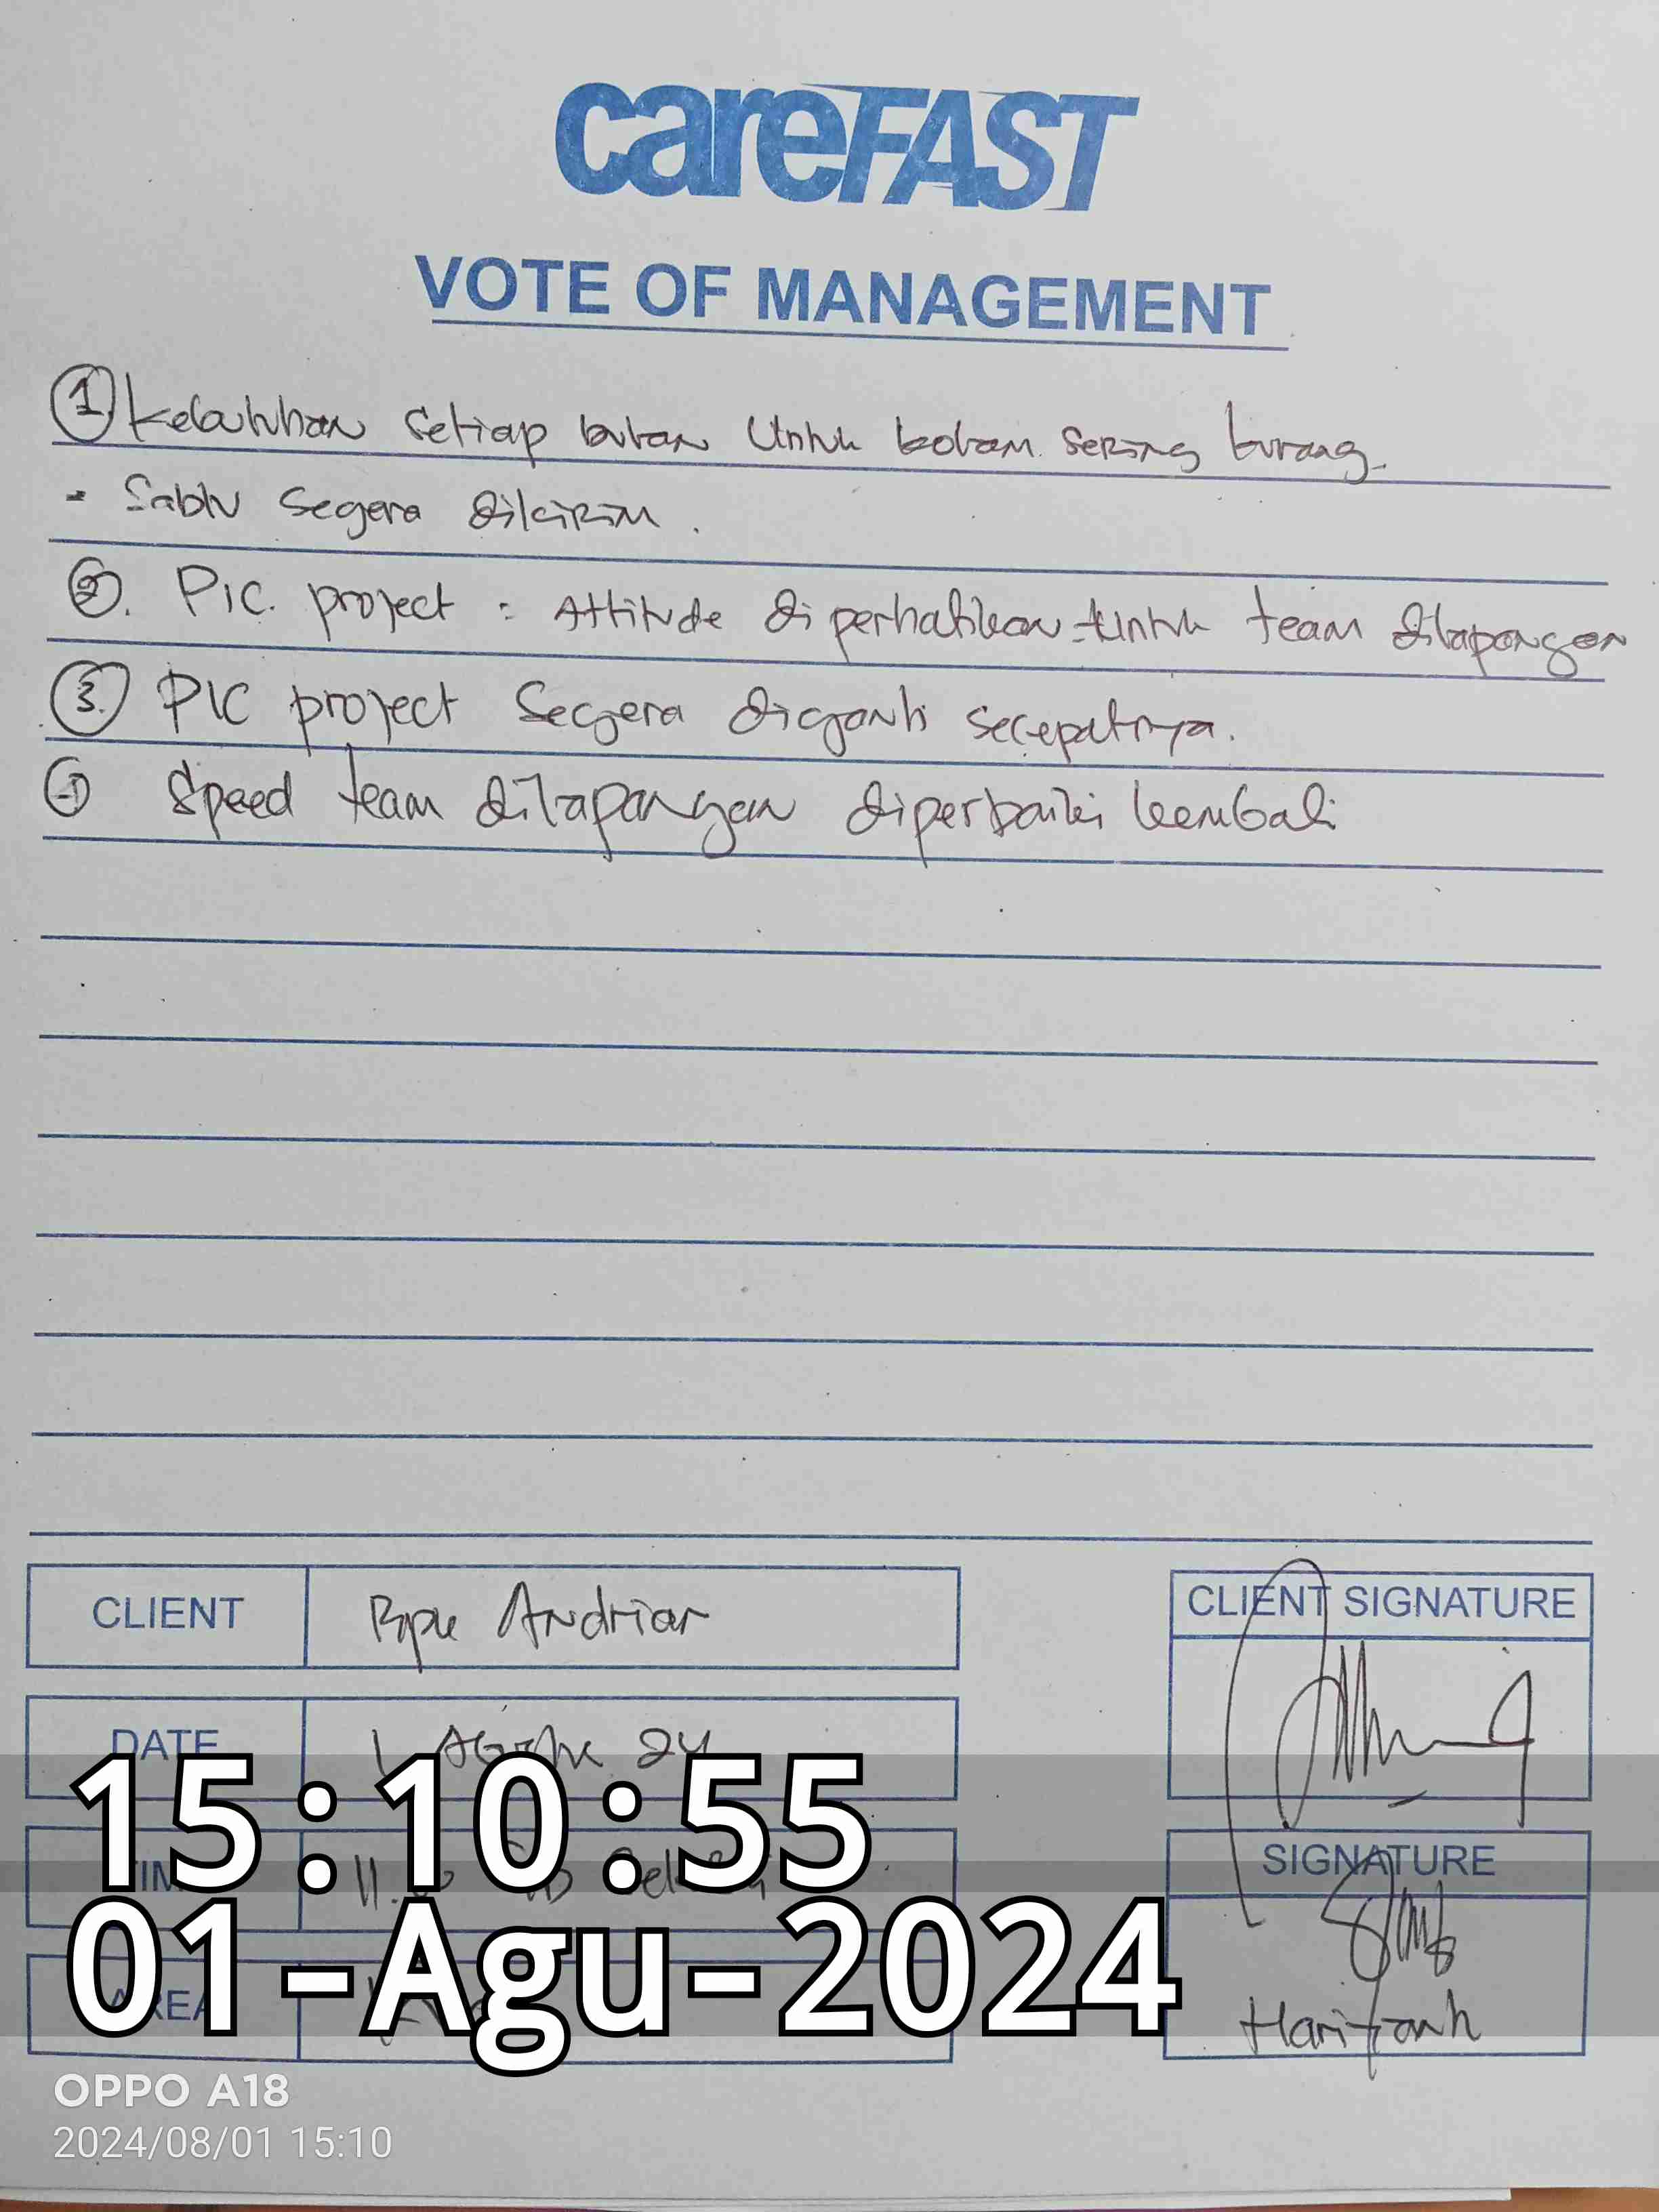 careFAST
VOTE OF MANAGEMENT
① Kebutuhan setiap bulan untuk kolam sering kurang.
- Sablu segera dikirim.
②. PIC. project : Attitude diperhatikan untuk team dilapangan
③. PIC project segera diganti secepatnya.
④ Speed team dilapangan diperbaiki kembali
CLIENT
Bpk Andrian
CLIENT SIGNATURE
DATE
1 24
15:10:55
SIGNATURE
01-Agu-2024
AREA
OPPO A18
2024/08/01 15:10